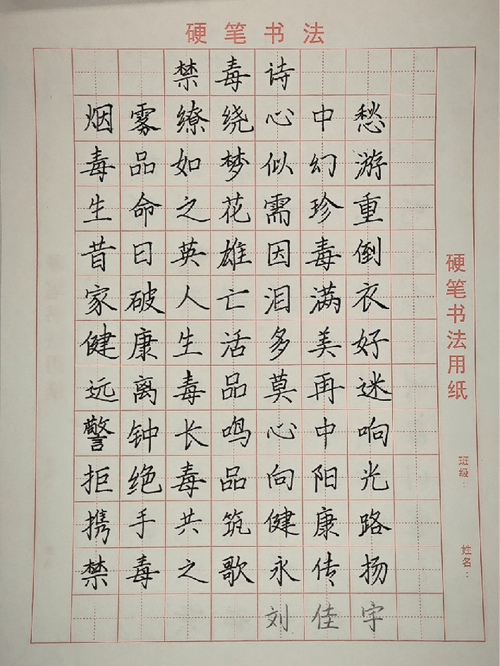 硬笔书法
禁毒诗
烟雾缭绕心中愁
毒品如梦似幻游
生命之花需珍重
昔日英雄因毒倒
家破人亡泪满衣
健康生活多美好
远离毒品莫再迷
警钟长鸣心中响
拒绝毒品向阳光
携手共筑健康路
禁毒之歌永传扬
刘佳宇
硬笔书法用纸
班级：
姓名：